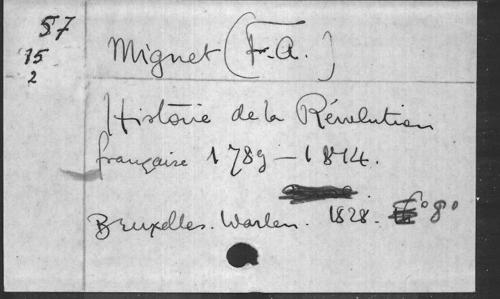 57
15
2
Mignet (Fr. A.)
Histoire de la Révolution
française 1789-1814.
Bruxelles. Warlen. 1828. 8°